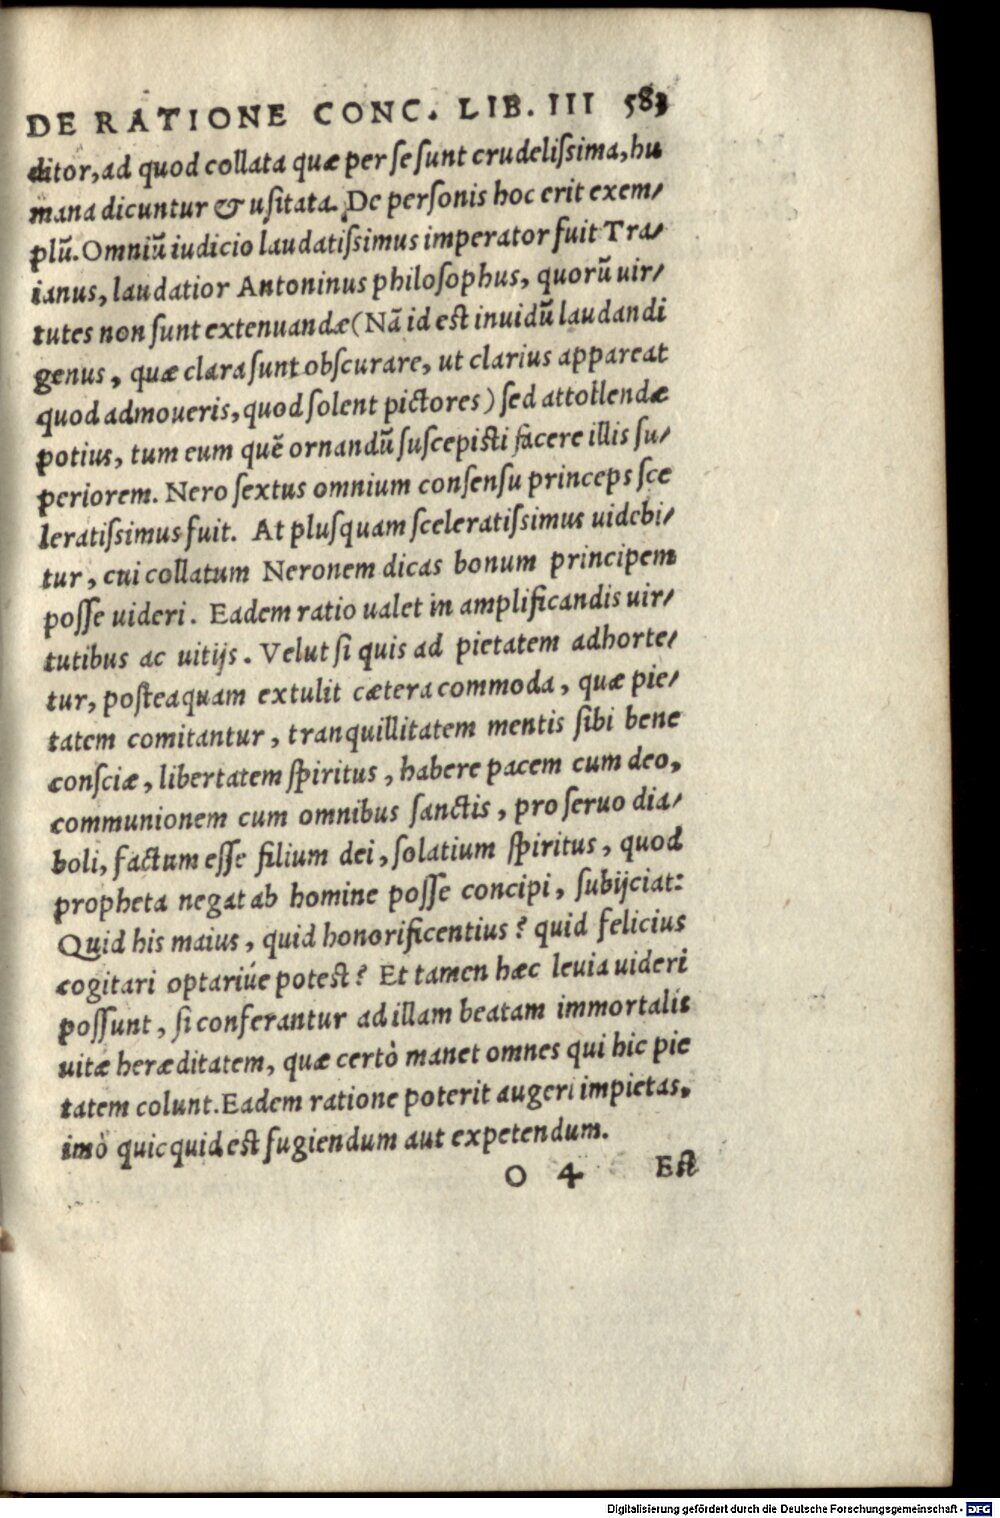 DE RATIONE CONC. LIB. III 583
ditor, ad quod collata quæ per se sunt crudelissima, hu
mana dicuntur & usitata. De personis hoc erit exem/
plũ. Omniũ iudicio laudatissimus imperator fuit Tra/
ianus, laudatior Antoninus philosophus, quorũ uir/
tutes non sunt extenuandæ (Nã id est inuidũ laudandi
genus, quæ clara sunt obscurare, ut clarius appareat
quod admoueris, quod solent pictores) sed attollendæ
potius, tum eum quẽ ornandũ suscepisti facere illis su/
periorem. Nero sextus omnium consensu princeps sce
leratissimus fuit. At plusquam sceleratissimus uidebi/
tur, cui collatum Neronem dicas bonum principem
posse uideri. Eadem ratio ualet in amplificandis uir/
tutibus ac uitijs. Velut si quis ad pietatem adhorte/
tur, posteaquam extulit cætera commoda, quæ pie/
tatem comitantur, tranquillitatem mentis sibi bene
consciæ, libertatem spiritus, habere pacem cum deo,
communionem cum omnibus sanctis, pro seruo dia/
boli, factum esse filium dei, solatium spiritus, quod
propheta negat ab homine posse concipi, subijciat:
Quid his maius, quid honorificentius? quid felicius
cogitari optariúe potest? Et tamen hæc leuia uideri
possunt, si conferantur ad illam beatam immortalis
uitæ heræditatem, quæ certò manet omnes qui hic pie
tatem colunt. Eadem ratione poterit augeri impietas,
imò quicquid est fugiendum aut expetendum.
O 4 Est
Digitalisierung gefördert durch die Deutsche Forschungsgemeinschaft - DFG